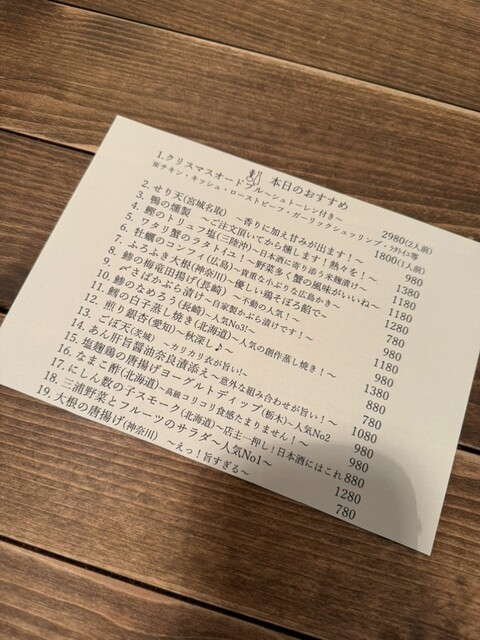 本日のおすすめ
1.クリスマスオードブル~シュトーレン付き~ 2980(2人前)
※チキン・キッシュ・ローストビーフ・ガーリックシュリンプ・ﾗﾀﾄｲﾕ等 1800(1人前)
2. せり天(宮城名取) ~香りに加え甘みが出ます!~ 980
3. 鴨の燻製 ~ご注文頂いてから燻します!熱々を!~ 1380
4. 鰹のトリュフ塩(三陸沖)~日本酒に寄り添う米麹漬け~ 1180
5. ワタリ蟹のラタトイユ!~野菜多く蟹の風味がいいね~ 1180
6. 牡蠣のコンフィ(広島)~貴重な小ぶりな広島かき~ 1280
7. ふろふき大根(神奈川)~優しい鶏そぼろ餡で~ 780
8. 鯵の梅竜田揚げ(長崎) ~不動の人気!~ 980
9. 〆さばかぶら漬け~自家製かぶら漬けです!~ 1180
10. 鯵のなめろう(長崎)~人気No3!~
11. 鱈の白子蒸し焼き(北海道)~人気の創作蒸し焼き!~ 1380
12. 煎り銀杏(愛知)~秋深し♪~ 880
13. ごぼ天(茨城) ~カリカリ衣が旨い!~ 780
14. あん肝旨醤油奈良漬添え~意外な組み合わせが旨い!~ 1080
15. 塩麹鶏の唐揚げヨーグルトディップ(栃木)~人気No2 980
16. なまこ酢(北海道)~高級コリコリ食感たまりません!~ 980
17. にしん数の子スモーク(北海道)~店主一押し!日本酒にはこれ 880
18. 三浦野菜とフルーツのサラダ~人気No1~ 1280
19. 大根の唐揚げ(神奈川) ~えっ!旨すぎる~ 780